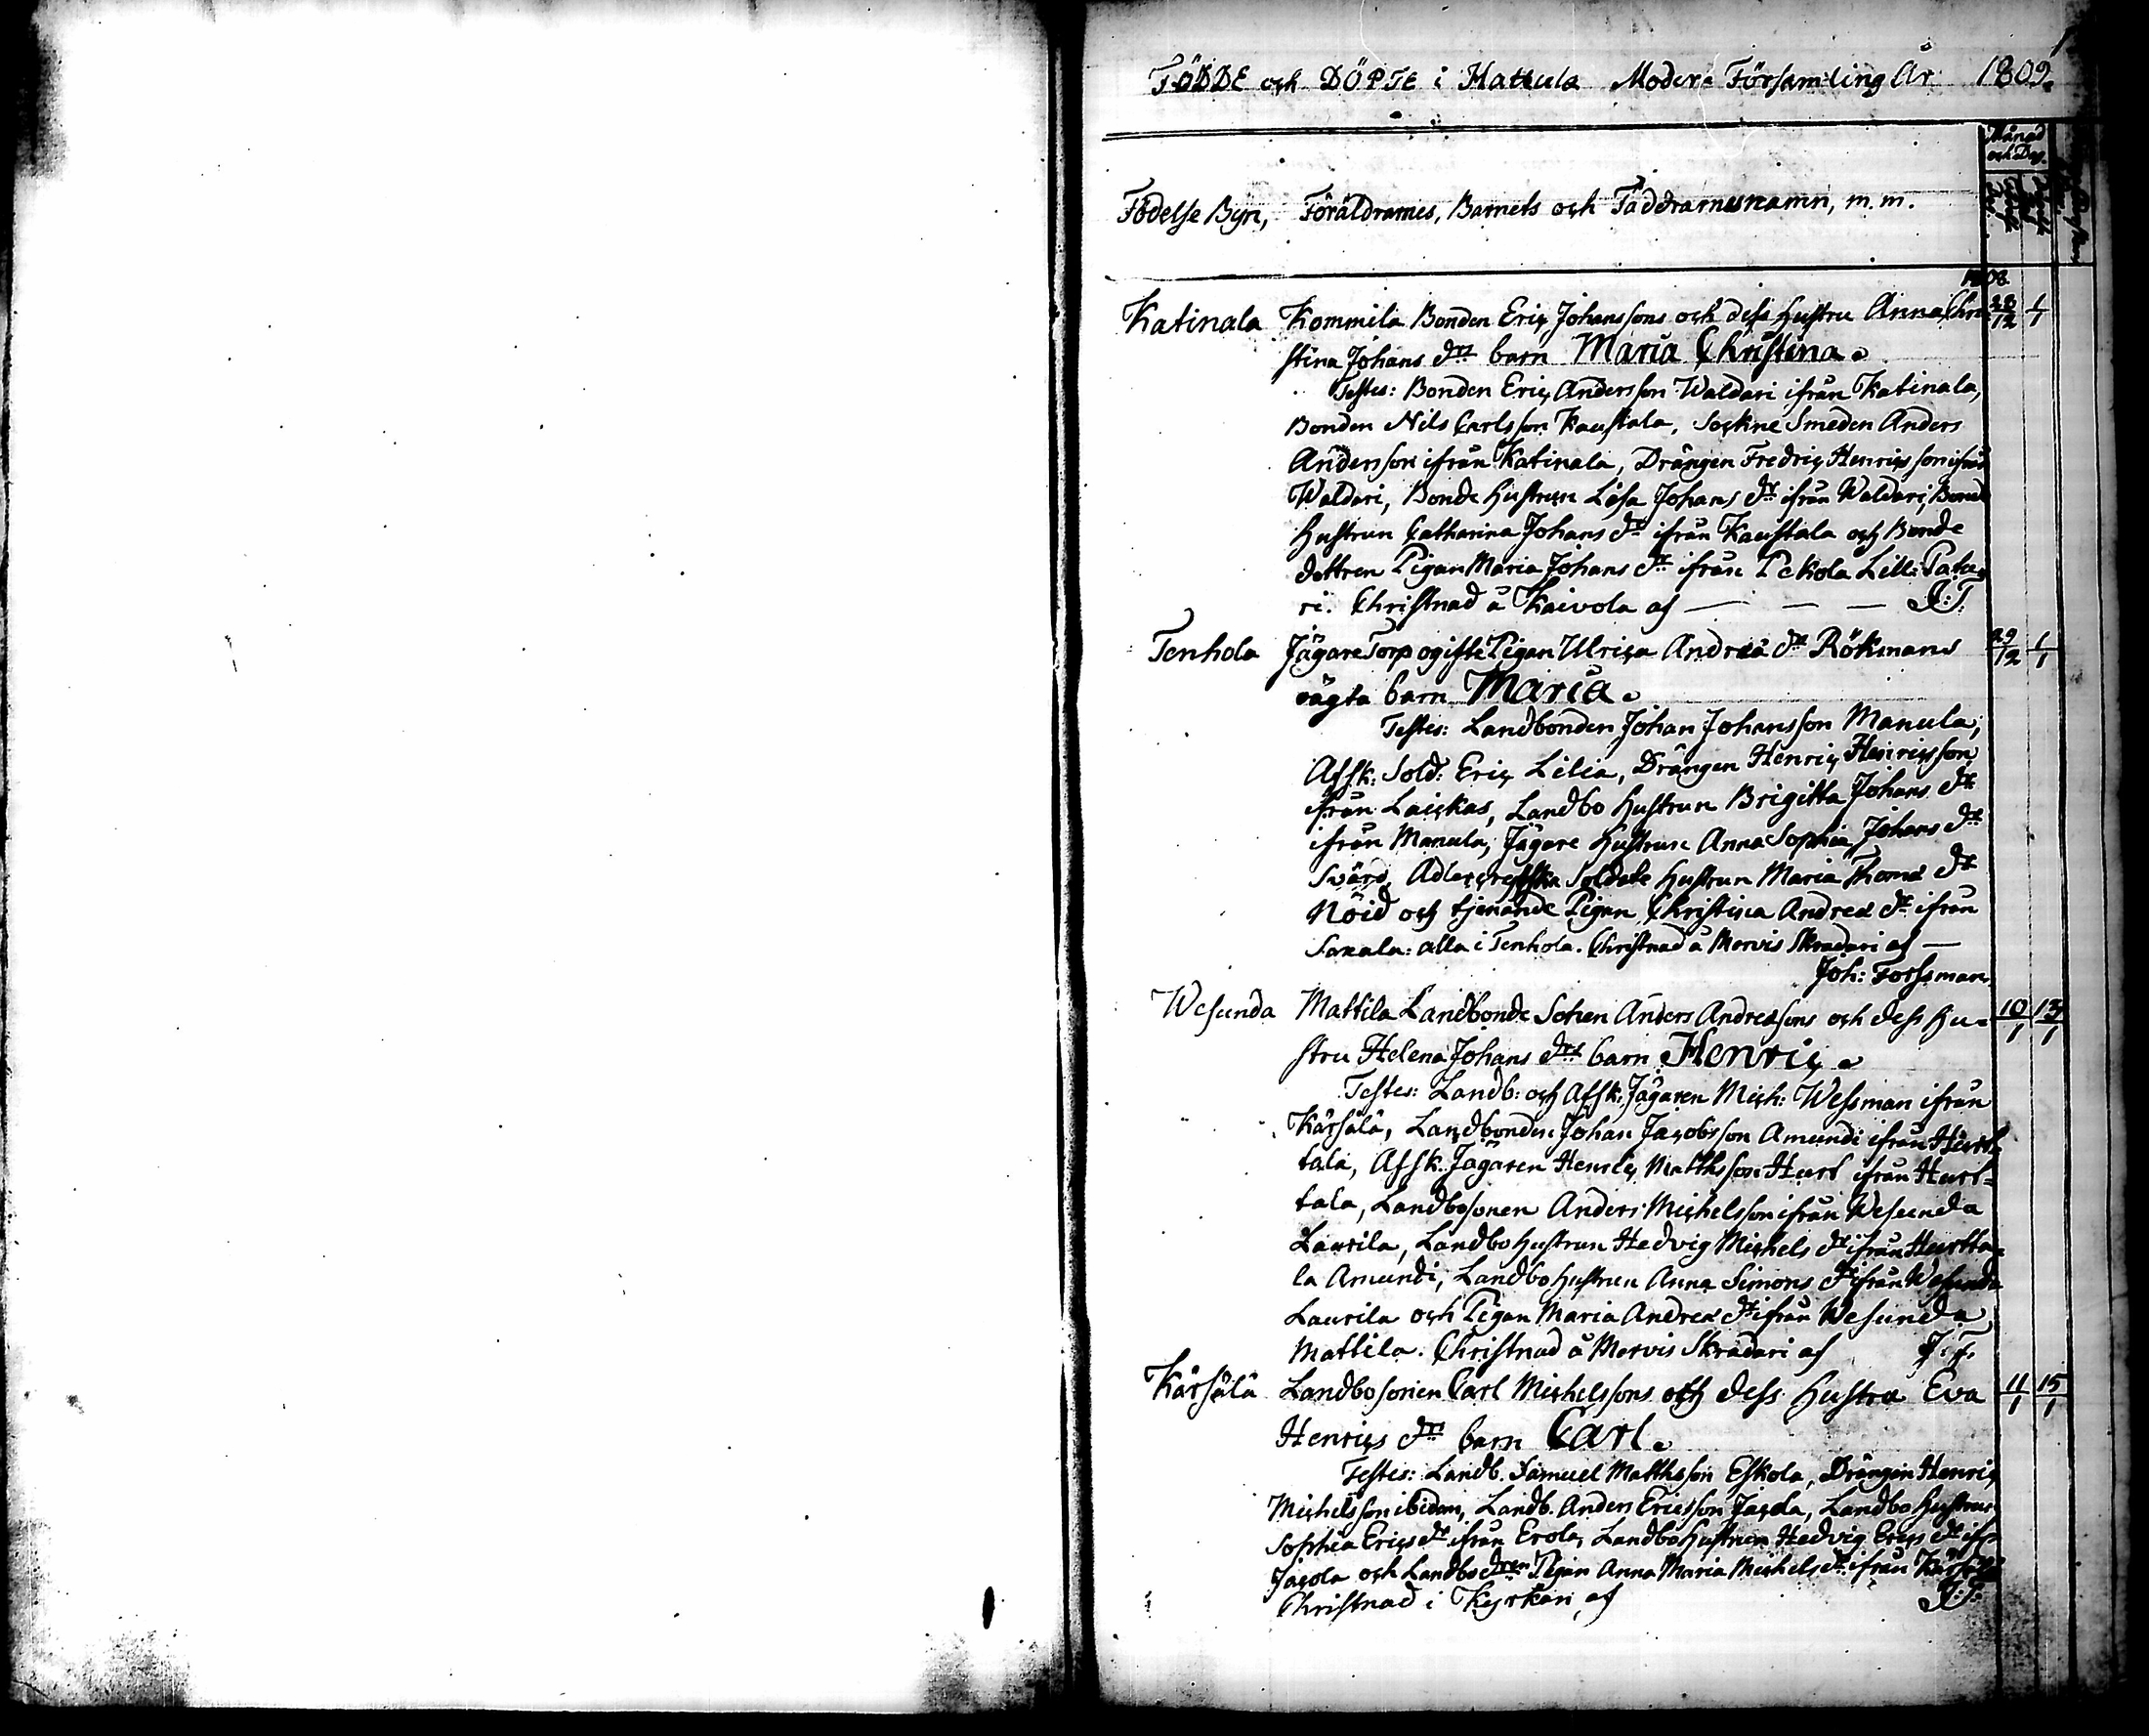 1
FÖDDE och DÖPTE i Hattula Moder-Församling År 1809.
Månad och Dag.
Födelse Byn, Föräldrarnes, Barnets och Faddrarnes namn, m.m.
1808
Katinala Kommila Bonden Eric Johanssons och dess hustru Anna Chri 28/12 1/1
stina Johans drs barn Maria Christina.
Testes: Bonden Eric Andersson Waldari ifrån Katinala,
Bonden Nils Carlsson Kaustala, Sockne Smeden Anders
Andersson ifrån Katinala, Drängen Fredric Henricsson ifrån
Waldari, Bonde hustrun Lisa Johans dr ifrån Waldari, Bonde
hustrun Catharina Johans dr ifrån Kaustala och Bonde
dottren Pigan Maria Johans dr ifrån Pekola Lill-
ri. Christnad å Kaivola af — — —
Tenhola Jägare Torp ogifta Pigan Ulrica Andreæ dr Rökmans 29/12 1/1
oägta barn Maria.
Testes: Landbonden Johan Johansson Manula,
Afsk: Sold: Eric Lilia, Drängen Henric Henricsson
ifrån Laickas, Landbo hustrun Brigitta Johans dr
ifrån Manula, Jägare hustrun Anna Sophia Johans dr
Svärd, Soldate hustrun Maria Thomæ dr
Nöid och tjenande Pigan Christina Andreæ dr ifrån
Sakala: alla i Tenhola. Christnad å Mervis Skradari af —
Joh: Forssman.
Wesunda Mattila Landbonde Sonen Anders Andreæsons och dess hu- 10/1 13/1
stru Helena Johans drs barn Henric.
Testes: Landb: och Afsk: Jägaren Mich: Wessman ifrån
Kärsälä, Landbonden Johan Jacobsson Amundi ifrån Hurt-
tala, Afsk. Jägaren Henric Matthsson Hurt ifrån Hurt-
tala, Landbosonen Anders Michelsson ifrån Wesunda
Laurila, Landbo hustrun Hedvig Michels dr ifrån Hurtta-
la Amundi, Landbo hustrun Anna Simons dr ifrån Wesunda
Laurila och Pigan Maria Andreæ dr ifrån Wesunda
Mattila. Christnad å Mervis Skradari af J. F.
Kärsälä Landbosonen Carl Michelssons och dess hustru Eva 11/1 15/1
Henrics drs barn Carl.
Testes: Landb. Samuel Matthsson Eskola, Drängen Henric
Michelsson ibidem, Landb. Anders Ericsson Jacola, Landbo hustrun
Sophia Erics dr ifrån Erola, Landbo hustrun Hedvig Erics dr ifr
Jacola och Landbo dren Pigan Anna Maria Michels dr ifrån Kärsälä
Christnad i Kyrkan af